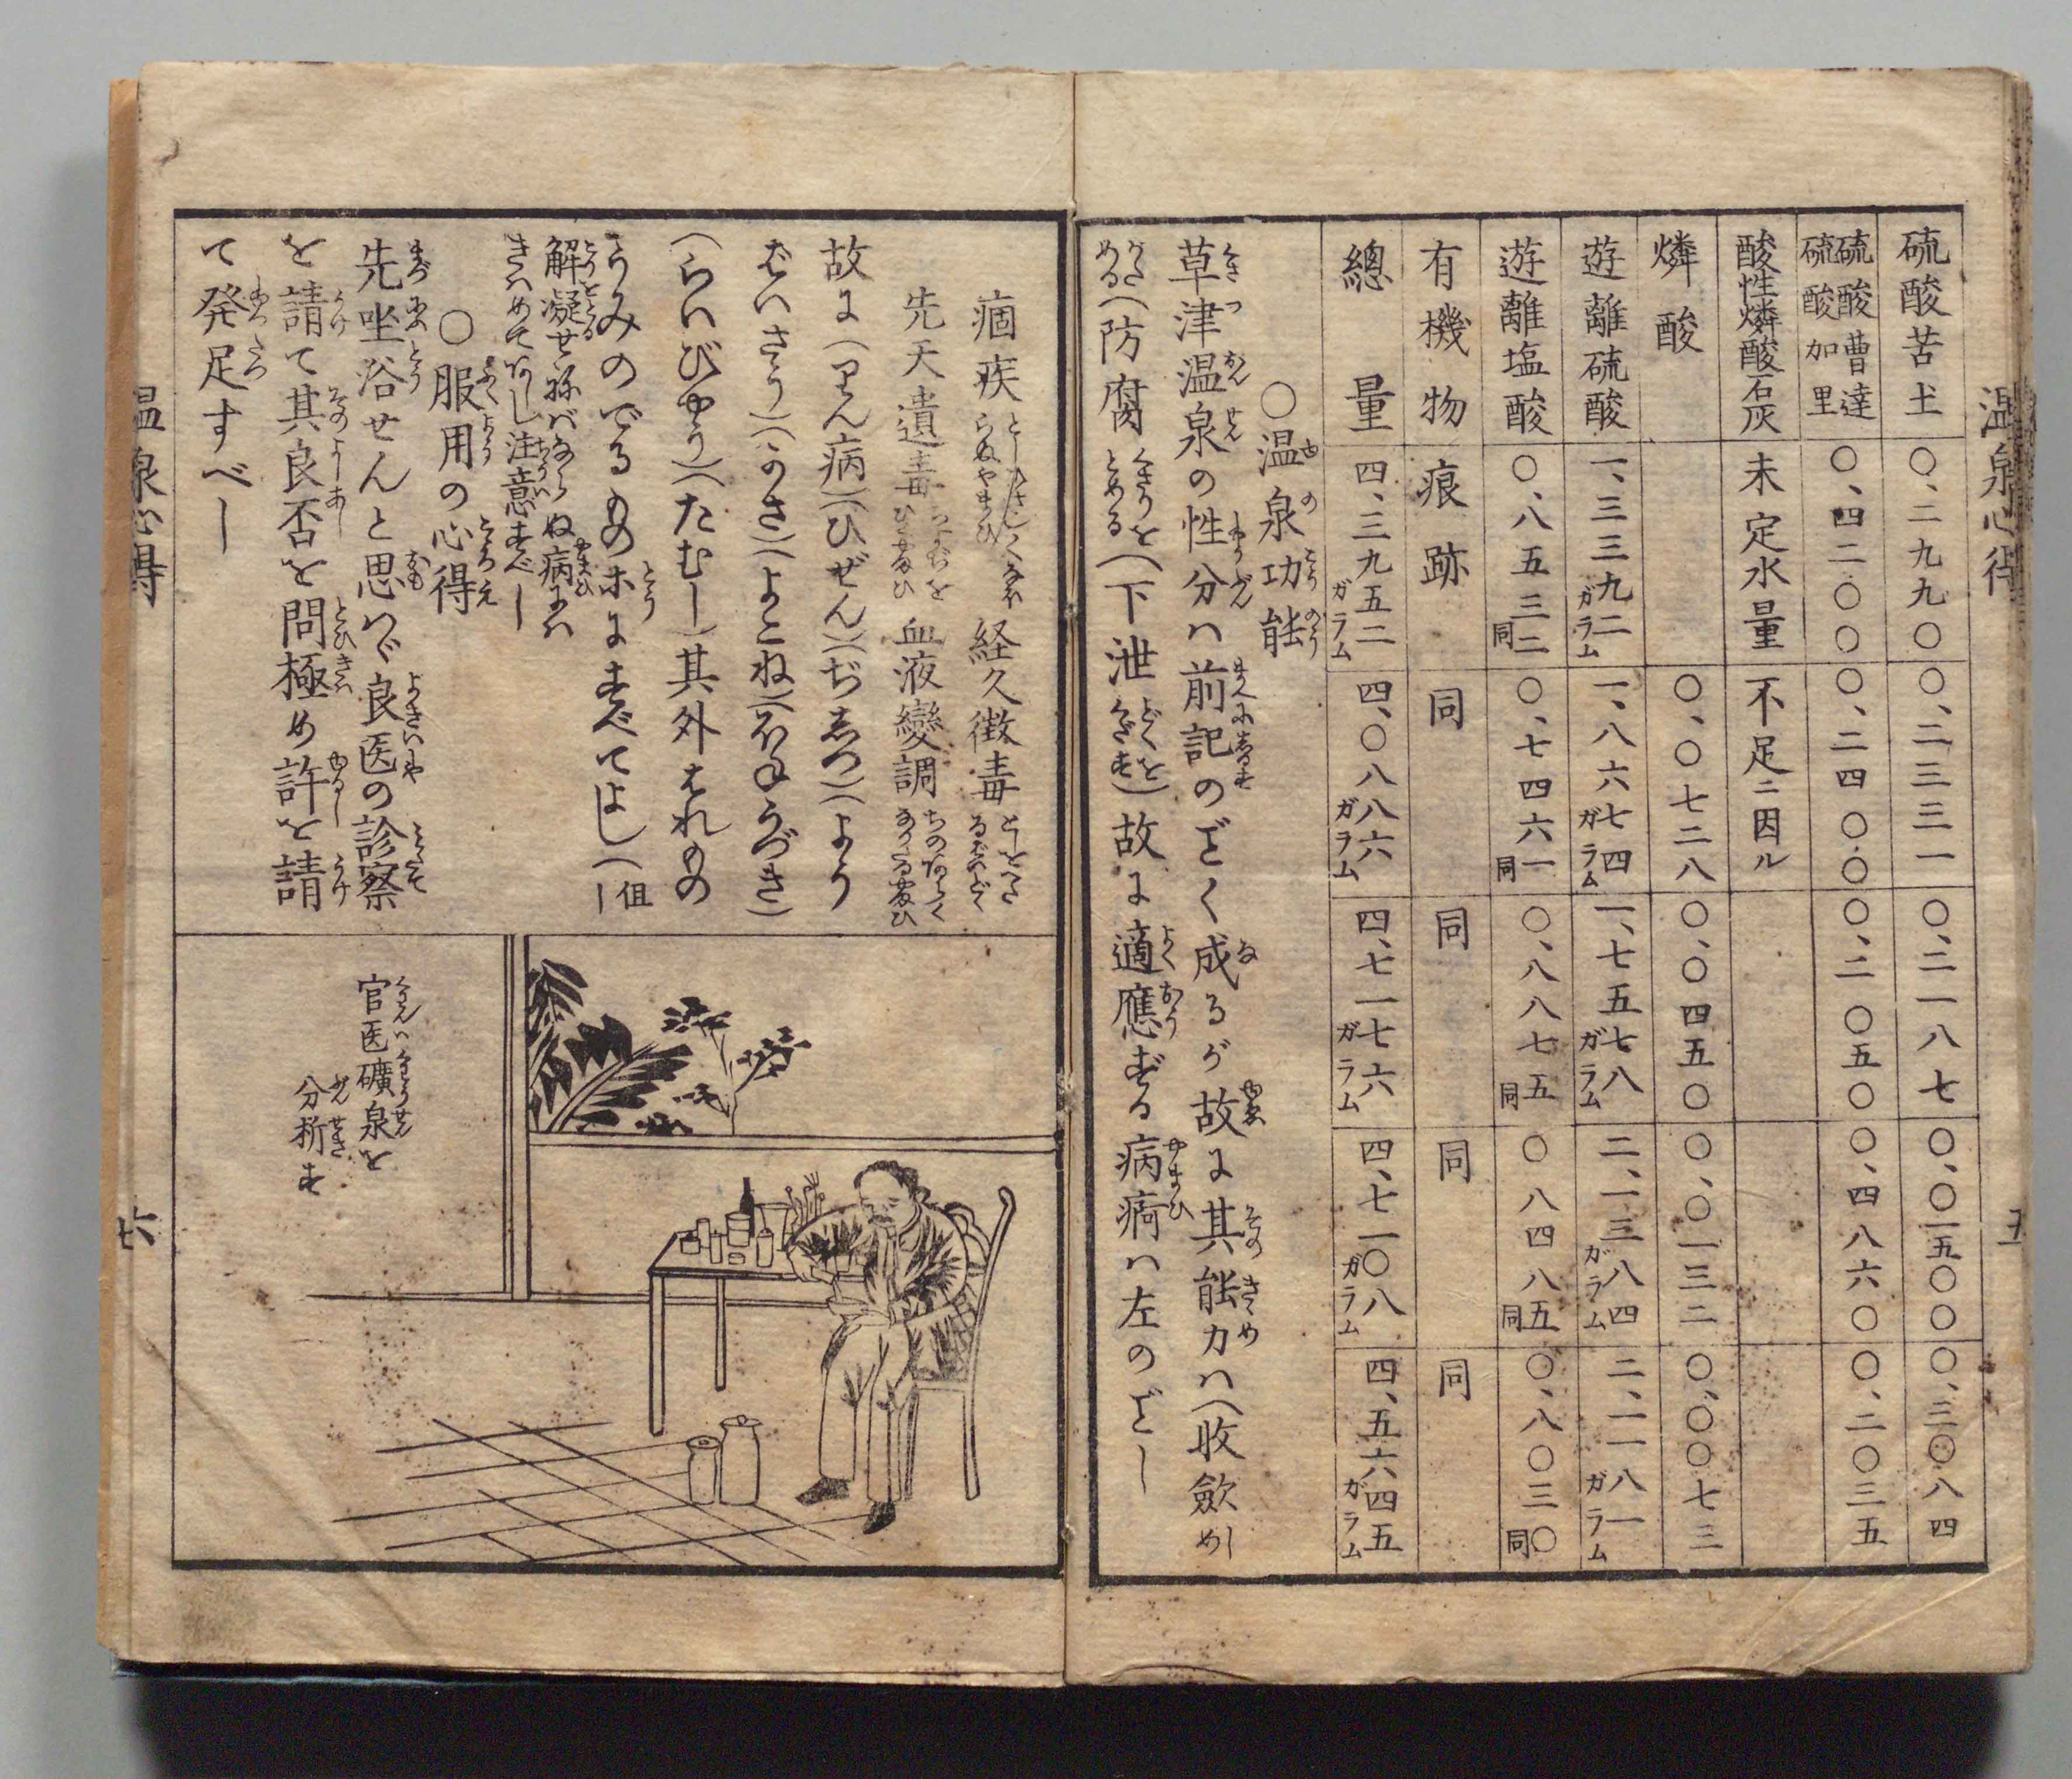 温泉心得
五
硫酸苦土 〇、二九九〇 〇、二三三一 〇、二一八七 〇、〇一五〇〇 〇、三〇八四
硫酸曹達
硫酸加里
〇、四二〇〇 〇、二四〇〇 〇、二〇五〇 〇、四八六〇 〇、二〇三五
酸性燐酸石灰 未定水量 不足ニ因ル
燐酸 〇、〇七二八 〇、〇四五〇 〇、〇一三二 〇、〇〇七三
遊離硫酸 一、三三九二ガラム 一、八六七四ガラム 一、七五七八ガラム 二、一三八四ガラム 二、一一八一ガラム
遊離塩酸 〇、八五三二同 〇、七四六一同 〇、八八七五同 〇八四八五同 〇、八〇三〇同
有機物 痕跡 同 同 同 同
總量 四、三九五二ガラム 四、〇八八六ガラム 四、七一七六ガラム 四、七一〇八ガラム 四、五六四五ガラム
〇温泉功能
草津温泉の性分ハ前記のごとく成るが故に其能力ハ(收斂
める(防腐くさりをとめる(下泄どくをくだす)故に適應する病痾ハ左のごとし
痼疾 経久黴毒
先天遺毒 血液變調
故に(りん病)(ひぜん)(ぢしつ)(よう
ばいさう)(かさ)(よこね)(ほねうづき)
(らいびやう)(たむし)其外はれもの
うみのでるもの等にすべてよし(但し
解凝せねばならぬ病には
きはめてあしし注意すべし
〇服用の心得
先坐浴せんと思はゞ良医の診察
を請て其良否を問極め許を請
て発足すべし
官医礦泉を
分析す
温泉心得
六